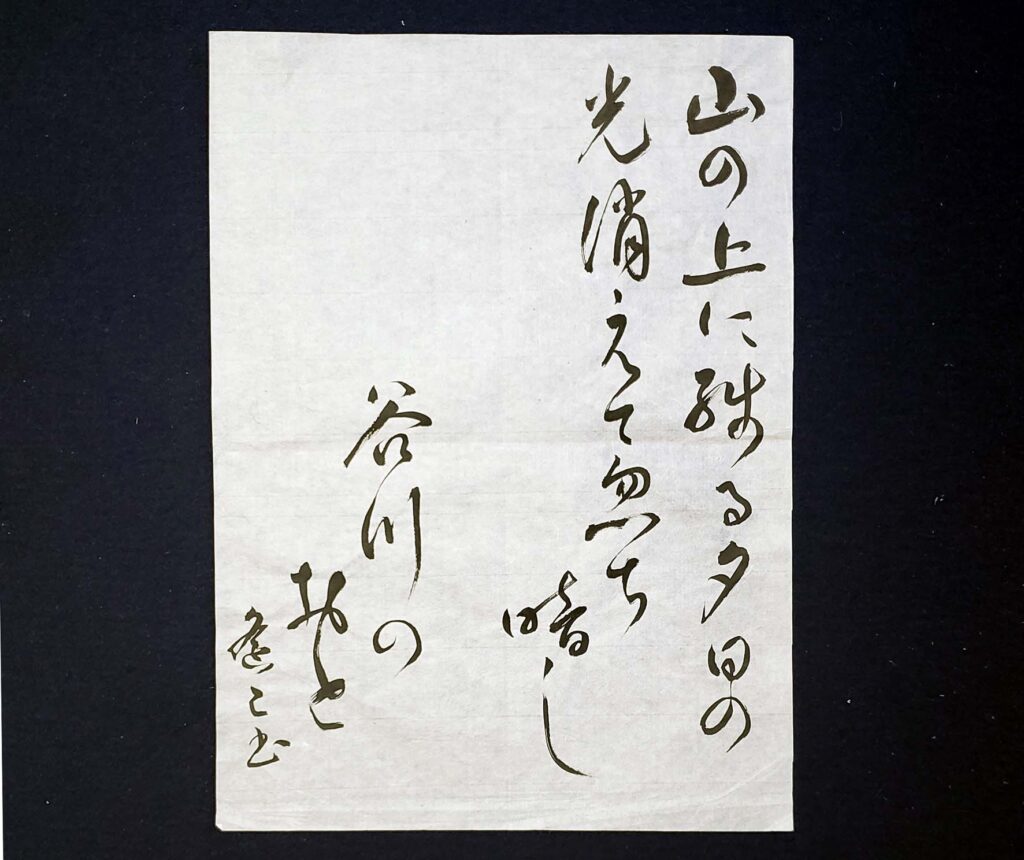 山の上に残る夕日の
光消えて忽ち
暗し
谷川の
おと
書